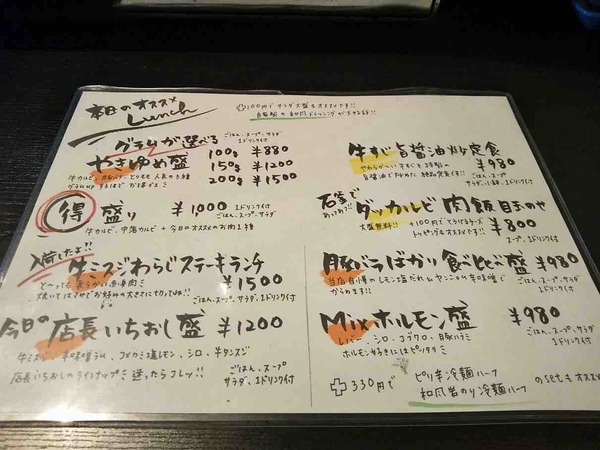 本日のオススメ
Lunch
100円で サラダ大盛もオススメです!!
自家製の 和風ドレッシングが
グラムが選べる
やきゆめ盛
100g ¥880
150g ¥1200
200g ¥1500
ごはん、スープ、サラダ
1ドリンク付
牛カルビ、豚バラ
得 盛り ¥1000
ごはん、スープ、サラダ
1ドリンク付
牛カルビ、中落カルビ + 今日のオススメのお肉1種
入荷したよ!!
牛ミスジわらじステーキランチ
¥1500
とーっても柔らかい赤身肉
焼いてハサミでお好みの大きさに切ってね!!
ごはん、スープ、サラダ、1ドリンク付
今日の店長いちおし盛 ¥1200
牛ミスジ、辛味噌ラム、コメカミ塩レモン、シロ、牛タンスジ
店長いちおしのラインナップ 迷ったらコレッ!!
ごはん、スープ
サラダ、1ドリンク付
牛すじ旨醤油炒定食
¥980
ごはん、スープ
サラダ、1ドリンク付
石釜であつあつ!!
ダッカルビ肉飯 目玉のや
大盛無料!! +100円でとろけるチーズ
トッピングもオススメです!!
¥800
スープ、1ドリンク付
豚バラばかり食べくらべ盛 ¥980
当店自慢のレモン塩だれ&ヤンニョム辛味噌で
からめます!!
ごはん、スープ
サラダ、1ドリンク付
Mixホルモン盛 ¥980
レバー、シロ、コブクロ、豚ハラミ
ホルモン好きにはピッタリ
ごはん、スープ
サラダ、1ドリンク付
330円で
ピリ辛冷麺ハーフ
和風岩のり冷麺ハーフ
のsetもオススメ